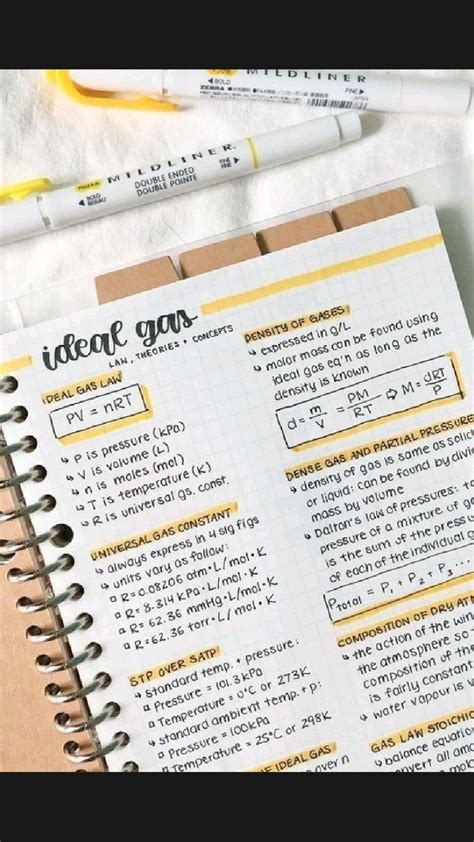 MILDLINER
BOLD
ZEBRA
FINE
JAPAN
MILDLINER
DOUBLE ENDED
DOUBLE POINTE
BOLD
FINE
ideal gas
LAW, THEORIES + CONCEPTS
IDEAL GAS LAW
PV = nRT
↳ P is pressure (kPa)
↳ V is volume (L)
↳ n is moles (mol)
↳ T is temperature (K)
↳ R is universal gs. const.
UNIVERSAL GAS CONSTANT
↳ always express in 4 sig figs
↳ units vary as follow:
▫ R=0.08206 atm·L/mol·K
▫ R= 8.314 kPa·L/mol·K
▫ R= 62.36 mmHg·L/mol·K
▫ R= 62.36 torr·L/mol·K
STP OVER SATP
↳ standard temp. + pressure:
▫ Pressure = 101.3 kPa
▫ Temperature = 0°C or 273K
↳ standard ambient temp. + p:
▫ Pressure = 100kPa
▫ Temperature = 25°C or 298K
OF IDEAL GAS
DENSITY OF GASES
↳ expressed in g/L
↳ molar mass can be found using
ideal gas eq'n as long as the
density is known
d = m/V = PM/RT ⇨ M = dRT/P
DENSE GAS AND PARTIAL PRESSURE
↳ density of gas is same as solid
or liquid: can be found by divi
mass by volume
↳ Dalton's law of pressures: to
pressure of a mixture of ga
is the sum of the pressu
of each of the individual g
Ptotal = P1 + P2 + P3 ...
COMPOSITION OF DRY ATM
↳ the action of the win
the atmosphere sa
composition of the
is fairly constan
↳ water vapour is v
GAS LAW STOICH
↳ balance equation
convert all amo